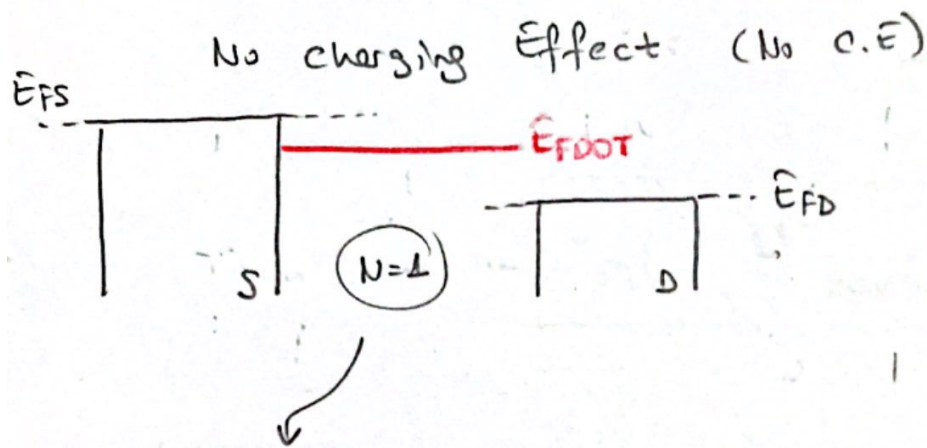 No charging Effect (No C.E)
EFS
EFDOT
EFD
S
N=1
D